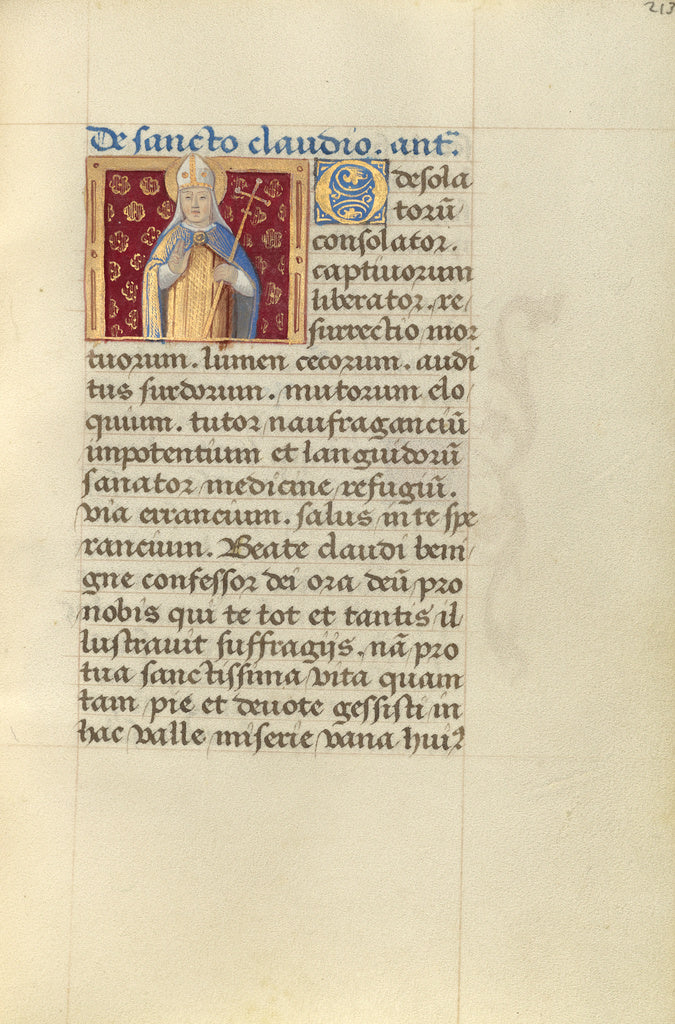 213
De sancto claudio. antˉ.
O desola
torū
consolator.
captiuorum
liberator. re/
surrectio mor
tuorum. lumen cecorum. audi
tus surdorum. mutorum elo/
quium. tutor naufraganciū
impotentium et languidorū
sanator medicine refugiū.
via errancium. salus in te spe
rancium. Beate claudi beni/
gne confessor dei ora deū pro
nobis qui te tot et tantis il/
lustrauit suffragijs. nā pro
tua sanctissima vita quam
tam pie et deuote gessisti in
hac valle miserie vana huiꝰ